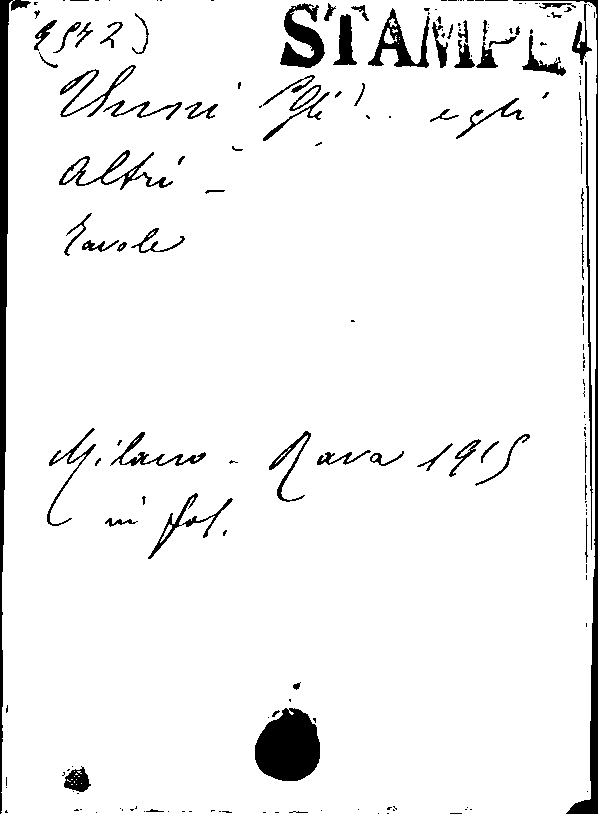 (2542)
STAMPE 4
Unni (Gli) .. e gli
altri -
tavole
Milano - Rava 1915
in fol.